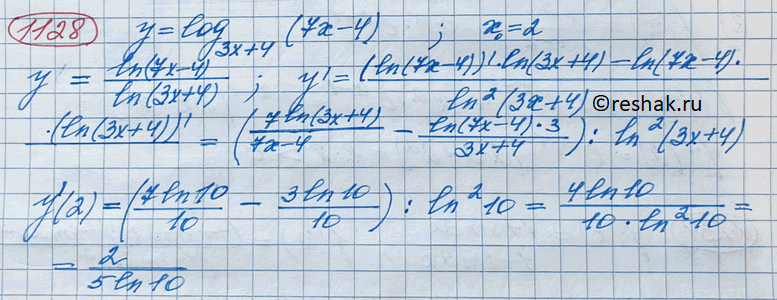 1128 y = log_{3x+4} (7x-4) ; x₀=2
y = ln(7x-4)/ln(3x+4) ; y' = (ln(7x-4))'·ln(3x+4) - ln(7x-4)·
·(ln(3x+4))' / ln²(3x+4) = (7ln(3x+4)/(7x-4) - ln(7x-4)·3/(3x+4)) : ln²(3x+4)
©reshak.ru
y'(2) = (7ln10/10 - 3ln10/10) : ln²10 = 4ln10/(10·ln²10) =
= 2/(5ln10)